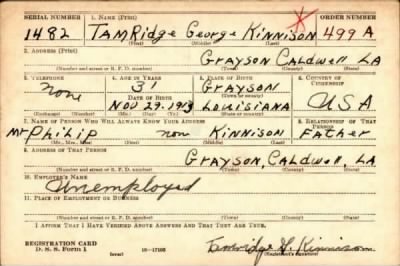 SERIAL NUMBER 1. NAME (Print) ORDER NUMBER
1482 TamRidge George Kinnison 499 A
(First) (Middle) (Last)
2. ADDRESS (Print)
Grayson Caldwell LA
(Number and street or R. F. D. number) (Town) (County) (State)
3. TELEPHONE 4. AGE IN YEARS 5. PLACE OF BIRTH 6. COUNTRY OF CITIZENSHIP
none 31 Grayson
DATE OF BIRTH (Town or county)
Nov 29. 1913 Louisiana USA
(Mo.) (Day) (Yr.) (State or country)
7. NAME OF PERSON WHO WILL ALWAYS KNOW YOUR ADDRESS 8. RELATIONSHIP OF THAT PERSON
Mr Philip non Kinnison Father
(Mr., Mrs., Miss) (First) (Middle) (Last)
9. ADDRESS OF THAT PERSON
Grayson, Caldwell, LA
(Number and street or R. F. D. number) (Town) (County) (State)
10. EMPLOYER'S NAME
Unemployed
11. PLACE OF EMPLOYMENT OR BUSINESS
(Number and street or R. F. D. number) (Town) (County) (State)
I AFFIRM THAT I HAVE VERIFIED ABOVE ANSWERS AND THAT THEY ARE TRUE.
REGISTRATION CARD
D. S. S. Form 1 (over) 16—17105 Tamridge G. Kinnison
(Registrant's signature)